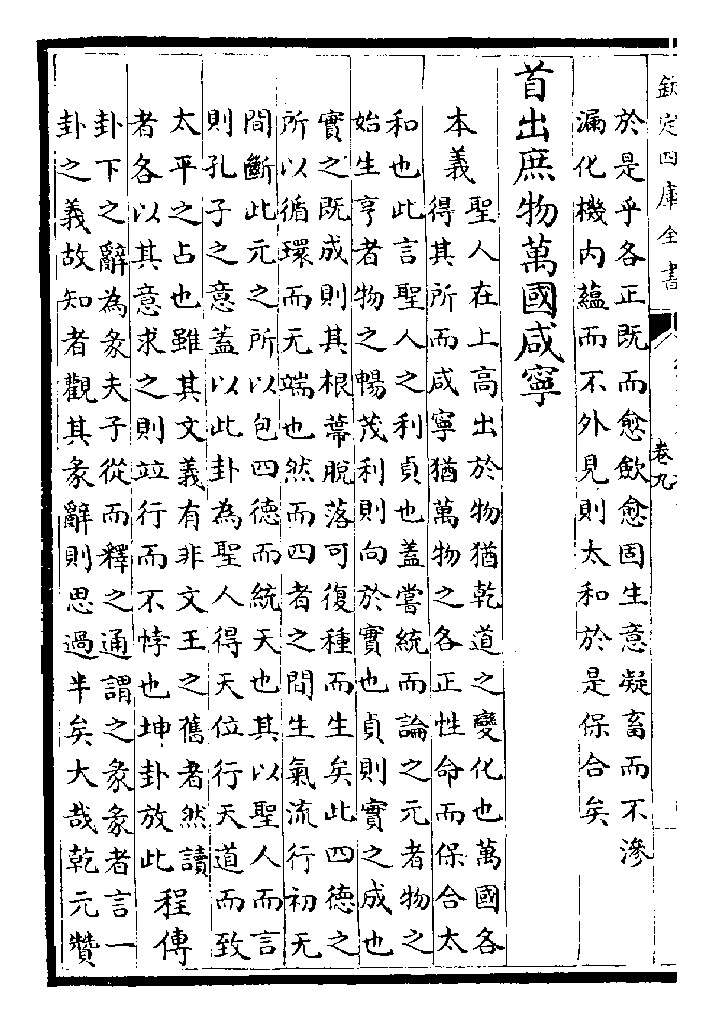 欽定四庫全書
卷九
於是乎各正既而愈歛愈固生意凝畜而不滲
漏化機内蘊而不外見則太和於是保合矣
首出庶物萬國咸寧
本義
聖人在上高出於物猶乾道之變化也萬國各
得其所而咸寧猶萬物之各正性命而保合太
和也此言聖人之利貞也蓋嘗統而論之元者物之
始生亨者物之暢茂利則向於實也貞則實之成也
實之既成則其根蔕脫落可復種而生矣此四德之
所以循環而无端也然而四者之間生氣流行初无
間斷此元之所以包四德而統天也其以聖人而言
則孔子之意蓋以此卦為聖人得天位行天道而致
太平之占也雖其文義有非文王之舊者然讀
者各以其意求之則竝行而不悖也坤卦放此
程傳
卦下之辭為彖夫子從而釋之通謂之彖彖者言一
卦之義故知者觀其彖辭則思過半矣大哉乾元贊